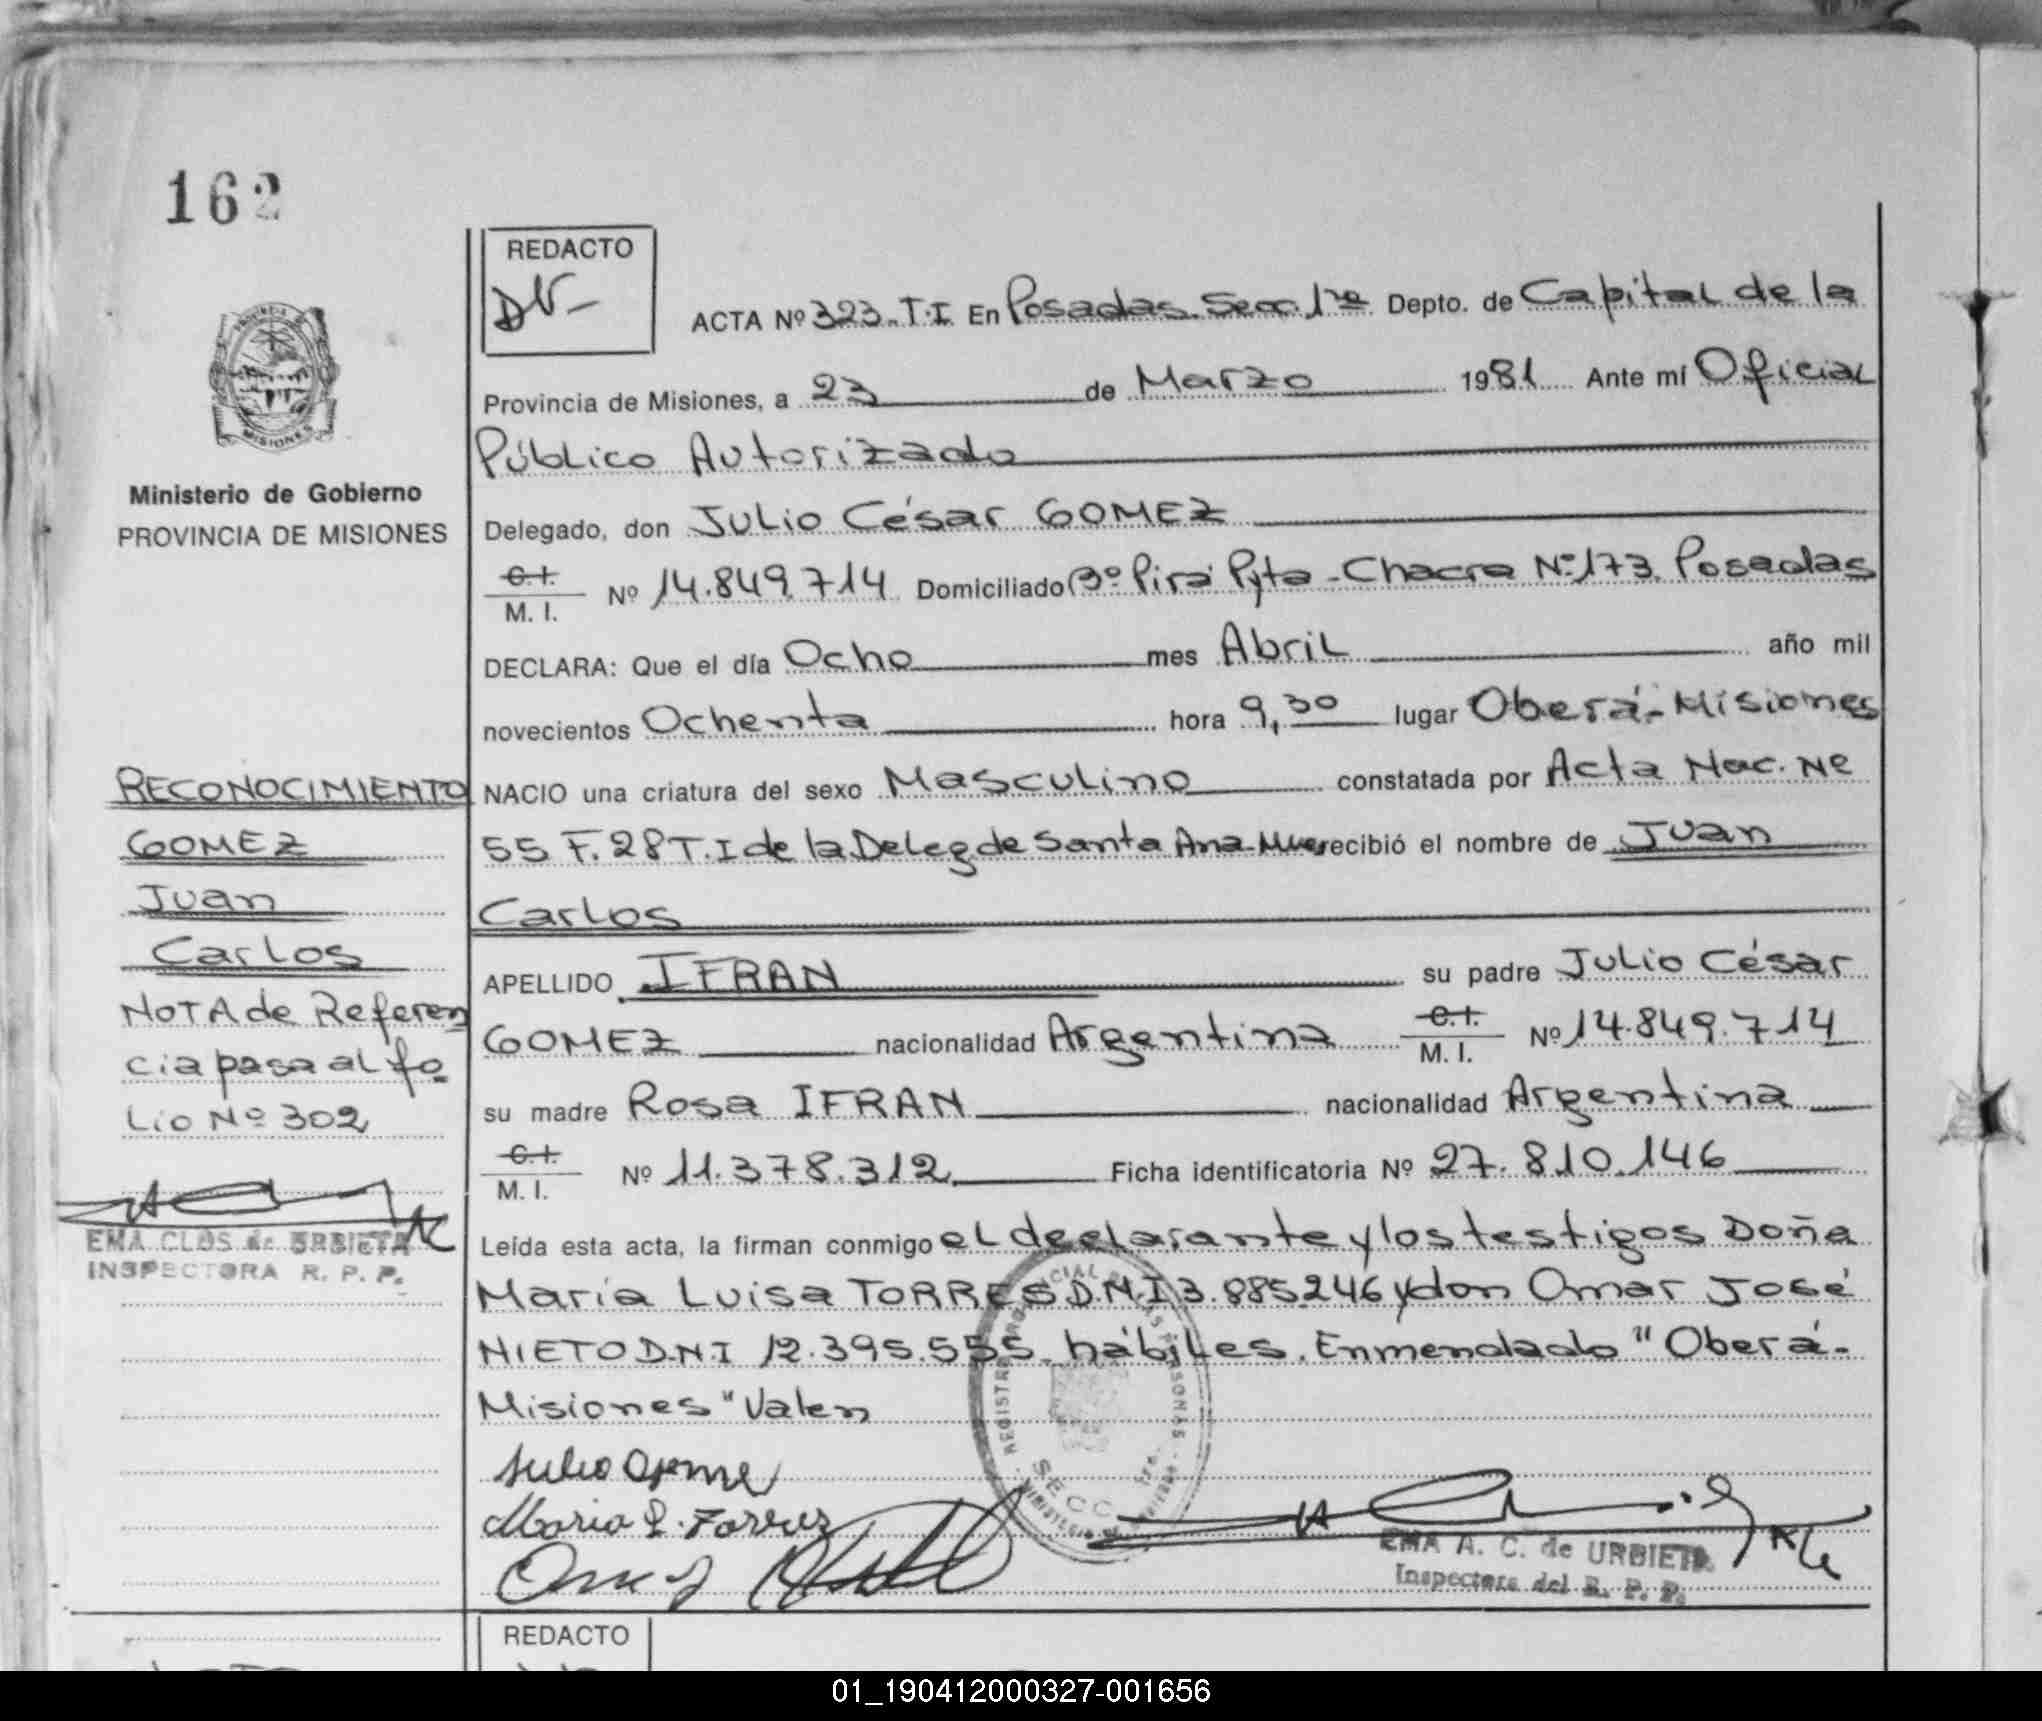 162
REDACTO
ACTA Nº 323. T.I En Posadas. Secc. 1ra Depto. de Capital de la
Provincia de Misiones, a 23 de Marzo 1981 Ante mí Oficial
Público Autorizado
Delegado, don Julio César GOMEZ
C.I. M. I. Nº 14.849.714 Domiciliado Bº Pirá Pyta - Chacra Nº 173 Posadas
DECLARA: Que el día Ocho mes Abril año mil
novecientos Ochenta hora 9,30 lugar Oberá-Misiones
NACIO una criatura del sexo Masculino constatada por Acta Nac. Nº
55 F. 28 T. I de la Deleg de Santa Ana recibió el nombre de Juan
Carlos
APELLIDO IFRAN su padre Julio César
GOMEZ nacionalidad Argentina C.I. M. I. Nº 14.849.714
su madre Rosa IFRAN nacionalidad Argentina
C.I. M. I. Nº 11.378.312 Ficha identificatoria Nº 27.810.146
Leída esta acta, la firman conmigo el declarante y los testigos Doña
María Luisa TORRES D.N.I 3.885246 y don Omar José
NIETO DNI 12.395.555 hábiles. Enmendado "Oberá-
Misiones" Valen
María L. Torres
EMA A. C. de URBIETA
Inspectora del R. P. P.
REDACTO
PROVINCIA DE
MISIONES
Ministerio de Gobierno
PROVINCIA DE MISIONES
RECONOCIMIENTO
GOMEZ
Juan
Carlos
NOTA de Referen
cia pasa al fo
Lio Nº 302
EMA CLOS de URBIETA
INSPECTORA R. P. P.
SECC
01_190412000327-001656